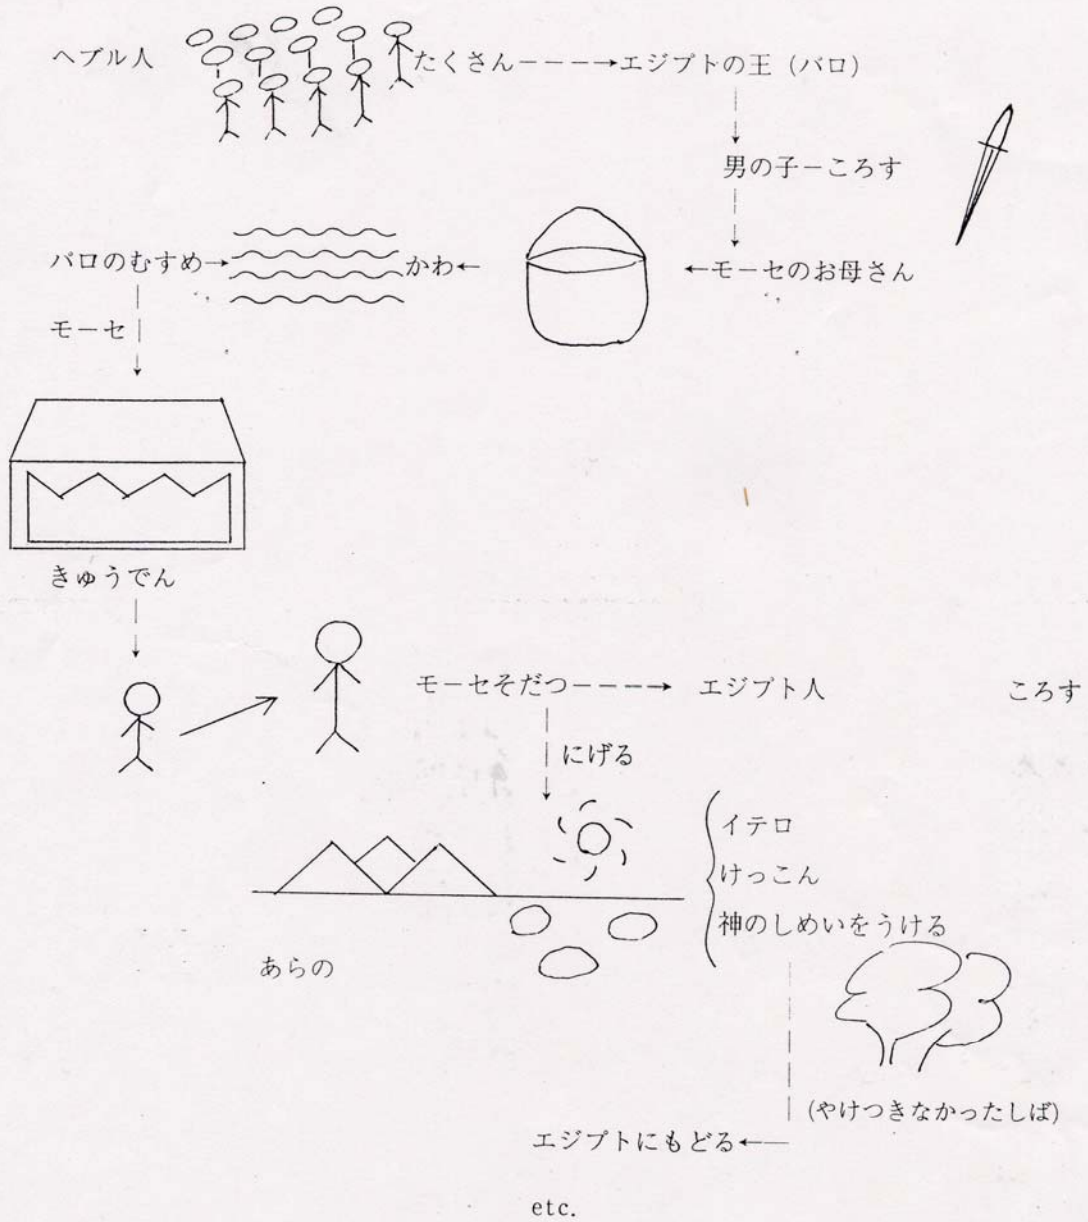 ヘブル人 たくさん----→エジプトの王（バロ）
男の子－ころす
バロのむすめ→ かわ← ←モーセのお母さん
モーセ
きゅうでん
モーセそだつ----→ エジプト人 ころす
にげる
イテロ
けっこん
神のしめいをうける
あらの
(やけつきなかったしば)
エジプトにもどる←──
etc.